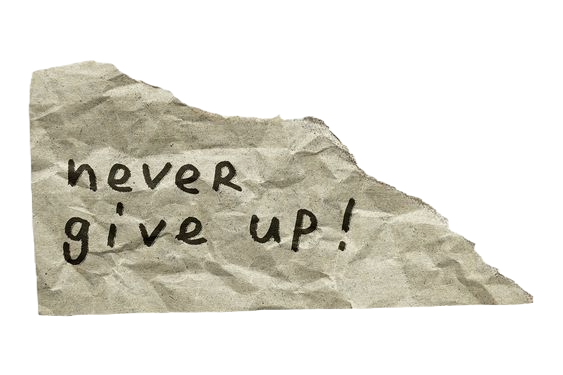 never
give up!